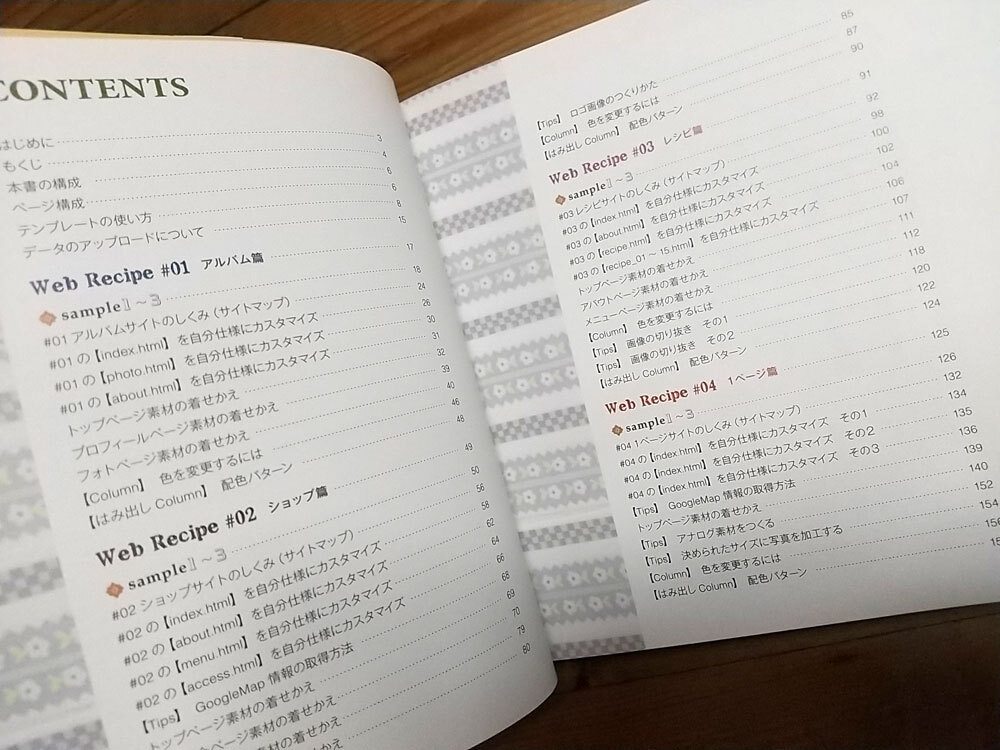 CONTENTS
はじめに 3
もくじ 4
本書の構成 6
ページ構成 6
テンプレートの使い方 8
データのアップロードについて 15
Web Recipe #01 アルバム篇 17
sample1～3 18
#01 アルバムサイトのしくみ（サイトマップ） 24
#01 の【index.html】を自分仕様にカスタマイズ 26
#01 の【photo.html】を自分仕様にカスタマイズ 30
#01 の【about.html】を自分仕様にカスタマイズ 31
トップページ素材の着せかえ 32
プロフィールページ素材の着せかえ 39
フォトページ素材の着せかえ 40
【Column】 色を変更するには 46
【はみ出し Column】 配色パターン 48
Web Recipe #02 ショップ篇 49
sample1～3 50
#02 ショップサイトのしくみ（サイトマップ） 56
#02 の【index.html】を自分仕様にカスタマイズ 58
#02 の【about.html】を自分仕様にカスタマイズ 62
#02 の【menu.html】を自分仕様にカスタマイズ 64
#02 の【access.html】を自分仕様にカスタマイズ 66
【Tips】 GoogleMap 情報の取得方法 68
トップページ素材の着せかえ 69
ページ素材の着せかえ 70
79
80
【Tips】 ロゴ画像のつくりかた 85
【Column】 色を変更するには 87
【はみ出し Column】 配色パターン 90
Web Recipe #03 レシピ篇 91
sample1～3 92
#03 レシピサイトのしくみ（サイトマップ） 98
#03 の【index.html】を自分仕様にカスタマイズ 100
#03 の【about.html】を自分仕様にカスタマイズ 102
#03 の【recipe.html】を自分仕様にカスタマイズ 104
#03 の【recipe_01 ～ 15.html】を自分仕様にカスタマイズ 106
トップページ素材の着せかえ 107
アバウトページ素材の着せかえ 111
メニューページ素材の着せかえ 112
【Column】 色を変更するには 118
【Tips】 画像の切り抜き その1 120
【Tips】 画像の切り抜き その2 122
【はみ出し Column】 配色パターン 124
Web Recipe #04 1ページ篇 125
sample1～3 126
#04 1ページサイトのしくみ（サイトマップ） 132
#04 の【index.html】を自分仕様にカスタマイズ その1 134
#04 の【index.html】を自分仕様にカスタマイズ その2 135
#04 の【index.html】を自分仕様にカスタマイズ その3 136
【Tips】 GoogleMap 情報の取得方法 139
トップページ素材の着せかえ 140
【Tips】 アナログ素材をつくる 152
【Tips】 決められたサイズに写真を加工する 154
【Column】 色を変更するには 156
【はみ出し Column】 配色パターン